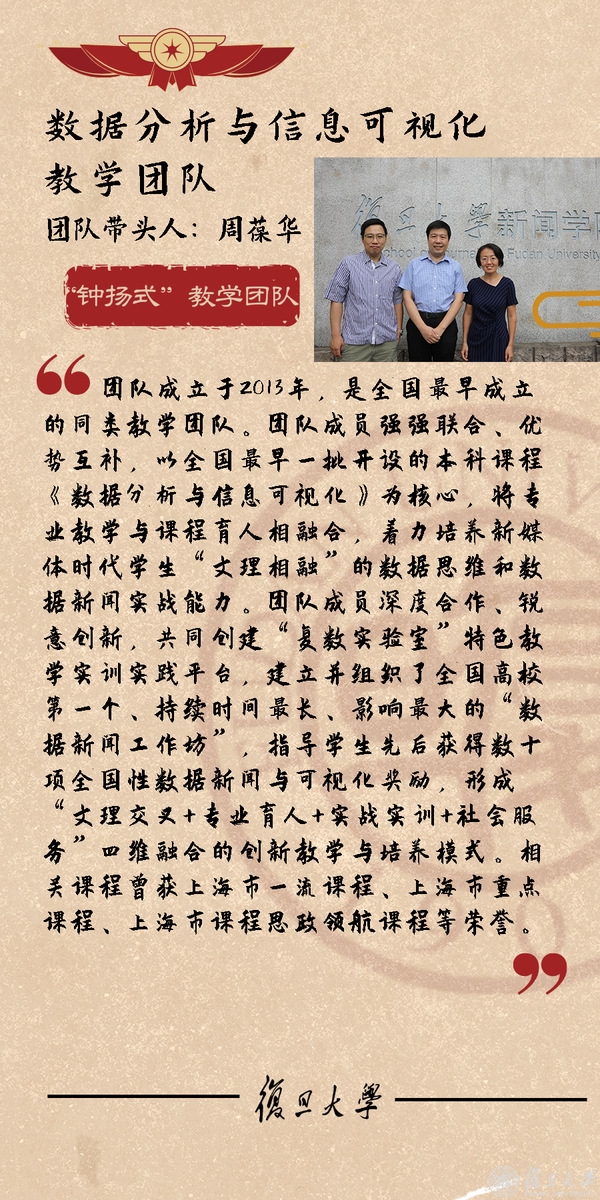 数据分析与信息可视化
教学团队
团队带头人：周葆华
“钟扬式”教学团队
復旦大學新闻学院
School Fudan University
团队成立于2013年，是全国最早成立
的同类教学团队。团队成员强强联合、优
势互补，以全国最早一批开设的本科课程
《数据分析与信息可视化》为核心，将专
业教学与课程育人相融合，着力培养新媒
体时代学生“文理相融”的数据思维和数
据新闻实战能力。团队成员深度合作、锐
意创新，共同创建“复数实验室”特色教
学实训实践平台，建立并组织了全国高校
第一个、持续时间最长、影响最大的“数
据新闻工作坊”，指导学生先后获得数十
项全国性数据新闻与可视化奖励，形成
“文理交叉+专业育人+实战实训+社会服
务”四维融合的创新教学与培养模式。相
关课程曾获上海市一流课程、上海市重点
课程、上海市课程思政领航课程等荣誉。
復旦大學
復旦大學